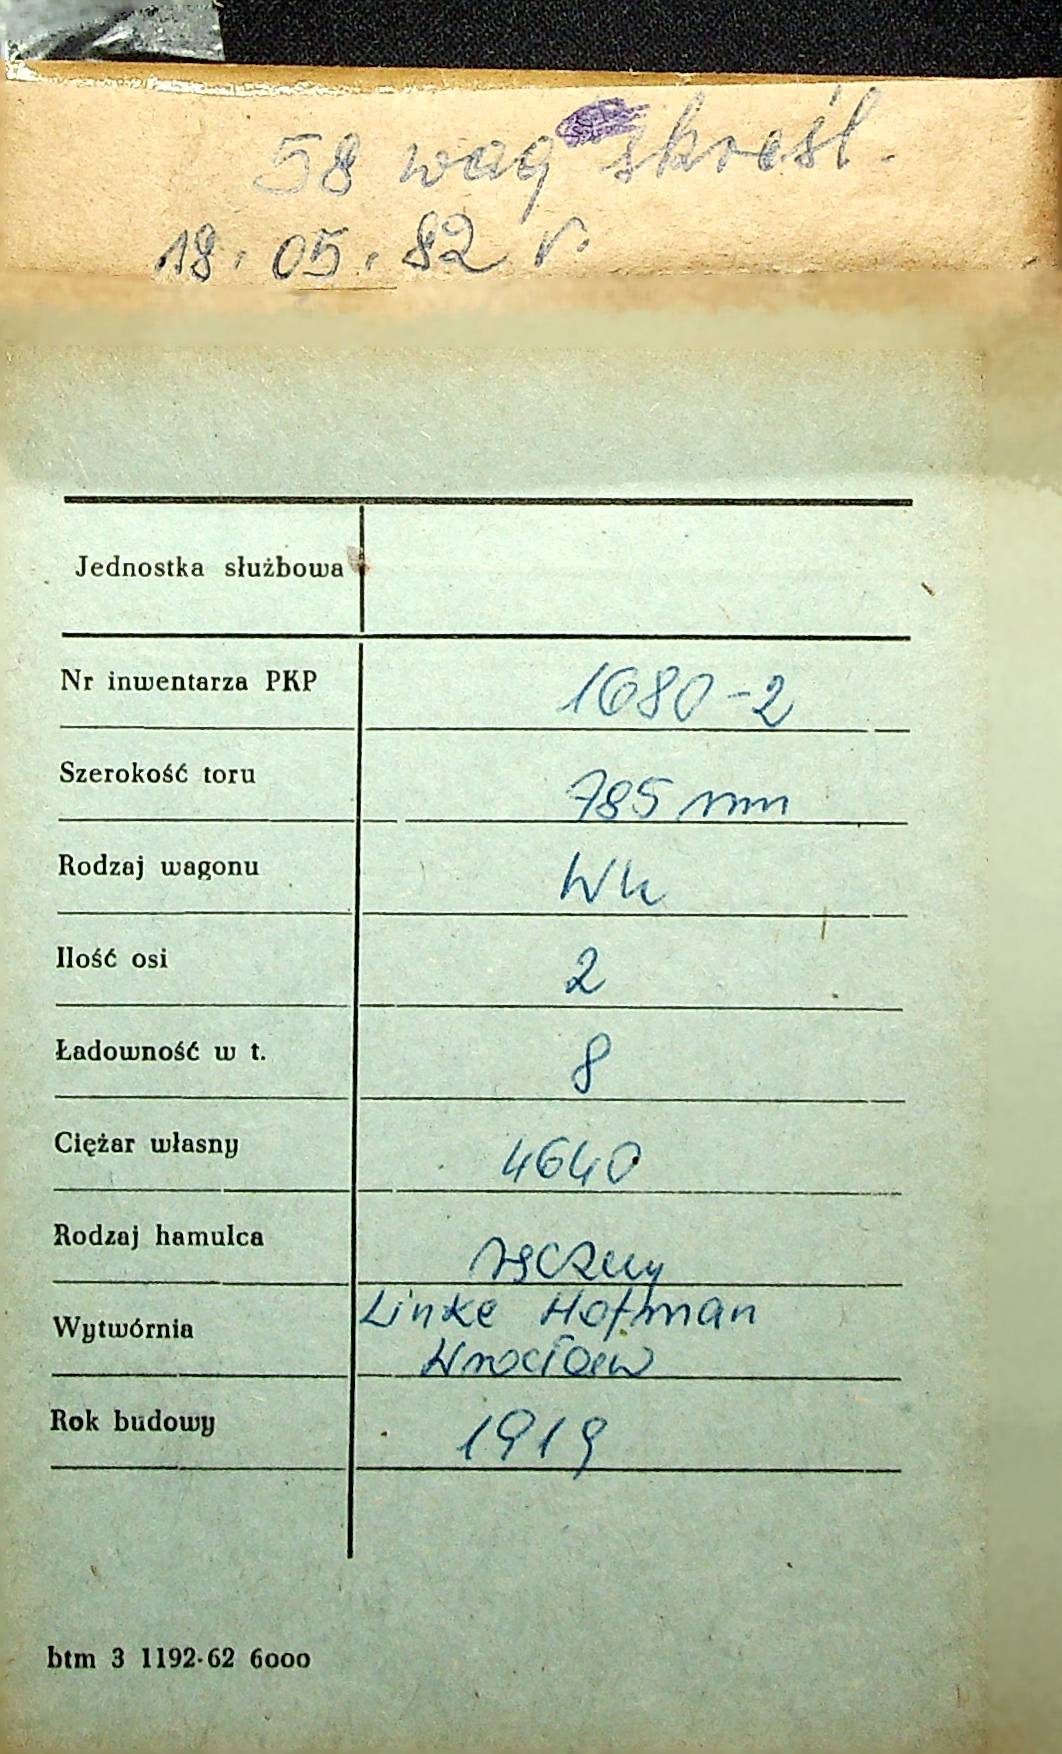 58 wag skreśl.
18.05.82 r.
Jednostka służbowa
Nr inwentarza PKP 1680-2
Szerokość toru 785 mm
Rodzaj wagonu Wk
Ilość osi 2
Ładowność w t. 8
Ciężar własny 4640
Rodzaj hamulca ręczny
Wytwórnia Linke Hofman
Wrocław
Rok budowy 1919
btm 3 1192-62 6000